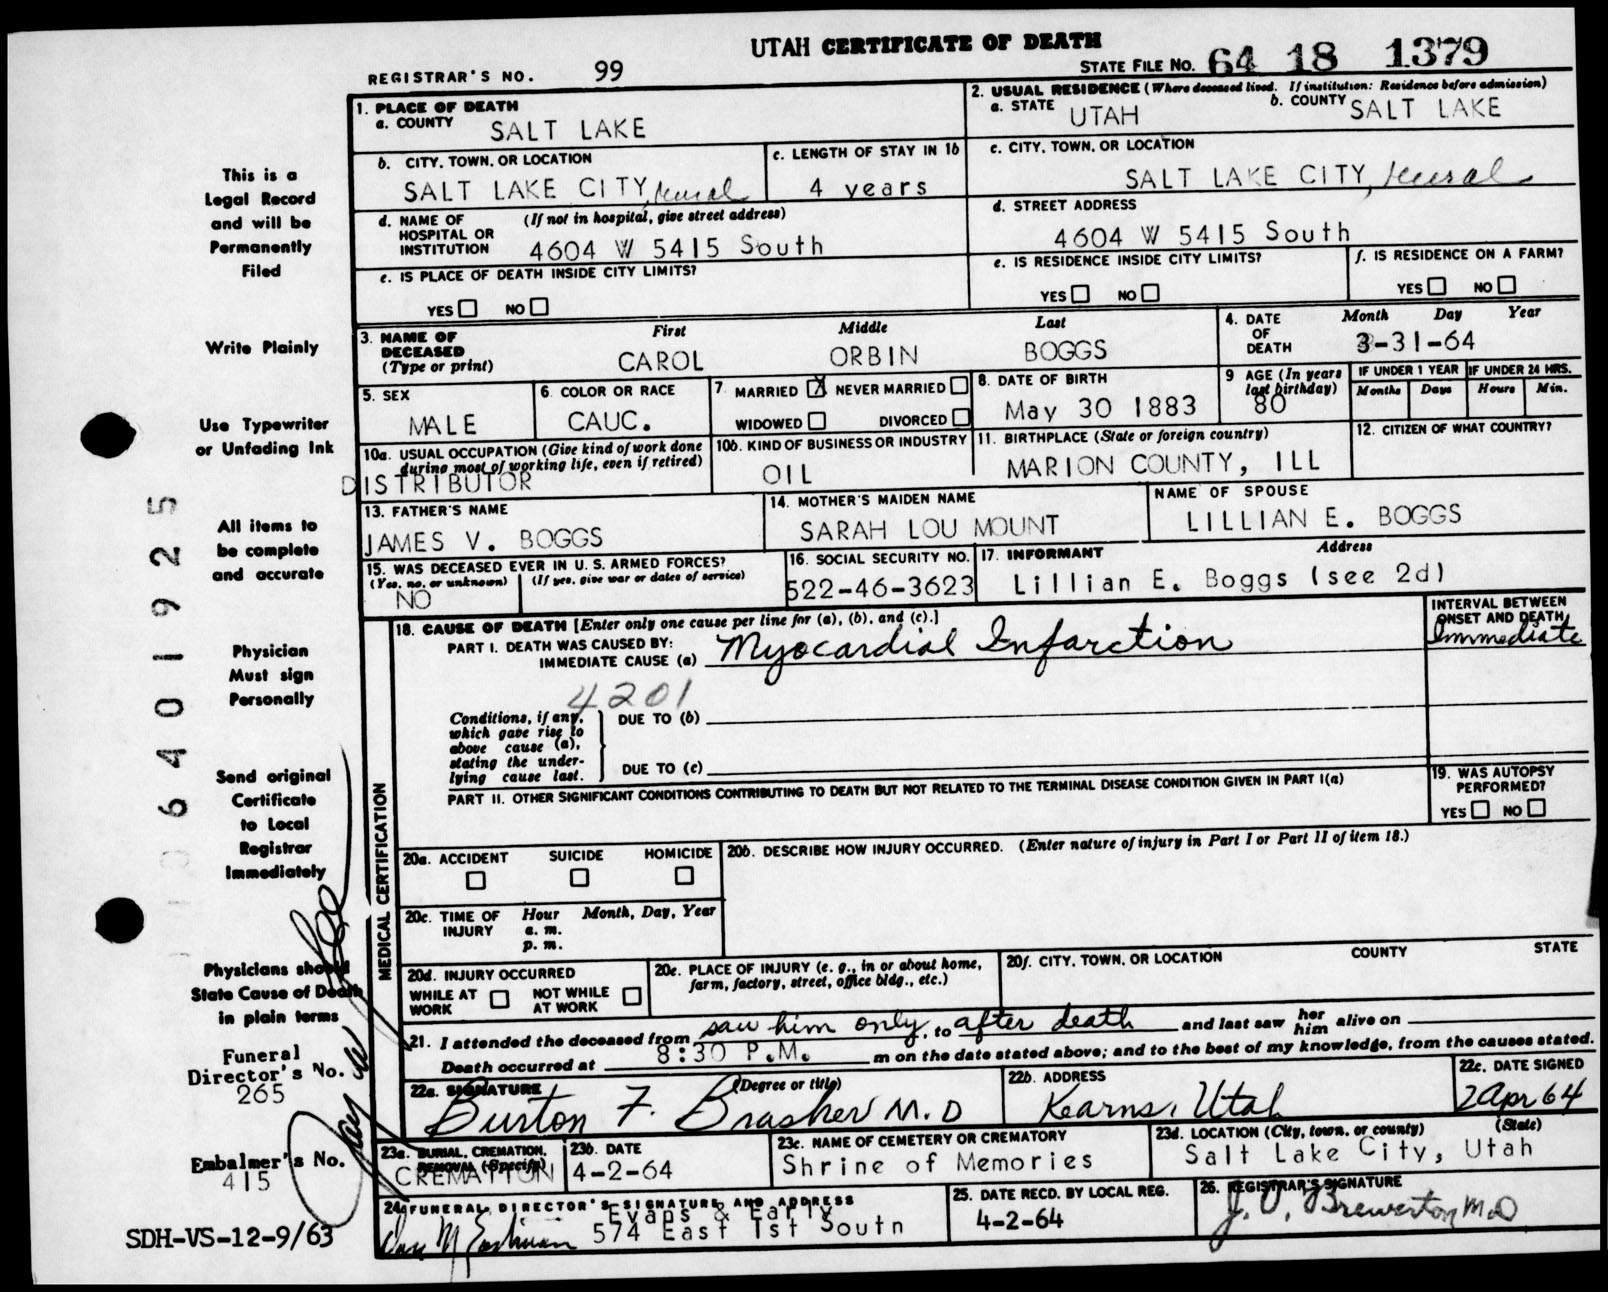 UTAH CERTIFICATE OF DEATH
REGISTRAR'S NO. 99
STATE FILE NO. 64 18 1379
1. PLACE OF DEATH
a. COUNTY SALT LAKE
2. USUAL RESIDENCE (Where deceased lived. If institution: Residence before admission)
a. STATE UTAH b. COUNTY SALT LAKE
b. CITY, TOWN, OR LOCATION
SALT LAKE CITY, rural
c. LENGTH OF STAY IN 1b
4 years
c. CITY, TOWN, OR LOCATION
SALT LAKE CITY, rural
d. NAME OF HOSPITAL OR INSTITUTION (If not in hospital, give street address)
4604 W 5415 South
d. STREET ADDRESS
4604 W 5415 South
e. IS PLACE OF DEATH INSIDE CITY LIMITS?
YES NO
e. IS RESIDENCE INSIDE CITY LIMITS?
YES NO
f. IS RESIDENCE ON A FARM?
YES NO
3. NAME OF DECEASED (Type or print)
First Middle Last
CAROL ORBIN BOGGS
4. DATE OF DEATH
Month Day Year
3-31-64
5. SEX
MALE
6. COLOR OR RACE
CAUC.
7. MARRIED X NEVER MARRIED
WIDOWED DIVORCED
8. DATE OF BIRTH
May 30 1883
9 AGE (In years last birthday)
80
IF UNDER 1 YEAR IF UNDER 24 HRS.
Months Days Hours Min.
10a. USUAL OCCUPATION (Give kind of work done during most of working life, even if retired)
DISTRIBUTOR
10b. KIND OF BUSINESS OR INDUSTRY
OIL
11. BIRTHPLACE (State or foreign country)
MARION COUNTY, ILL
12. CITIZEN OF WHAT COUNTRY?
13. FATHER'S NAME
JAMES V. BOGGS
14. MOTHER'S MAIDEN NAME
SARAH LOU MOUNT
NAME OF SPOUSE
LILLIAN E. BOGGS
15. WAS DECEASED EVER IN U. S. ARMED FORCES?
(Yes, no, or unknown) (If yes, give war or dates of service)
NO
16. SOCIAL SECURITY NO.
522-46-3623
17. INFORMANT Address
Lillian E. Boggs (see 2d)
18. CAUSE OF DEATH [Enter only one cause per line for (a), (b), and (c).]
PART I. DEATH WAS CAUSED BY:
IMMEDIATE CAUSE (a) Myocardial Infarction
INTERVAL BETWEEN ONSET AND DEATH
Immediate
4201
Conditions, if any, which gave rise to above cause (a), stating the underlying cause last.
DUE TO (b)
DUE TO (c)
PART II. OTHER SIGNIFICANT CONDITIONS CONTRIBUTING TO DEATH BUT NOT RELATED TO THE TERMINAL DISEASE CONDITION GIVEN IN PART I(a)
19. WAS AUTOPSY PERFORMED?
YES NO
MEDICAL CERTIFICATION
20a. ACCIDENT SUICIDE HOMICIDE
20b. DESCRIBE HOW INJURY OCCURRED. (Enter nature of injury in Part I or Part II of item 18.)
20c. TIME OF INJURY
Hour Month, Day, Year
a. m.
p. m.
20d. INJURY OCCURRED
WHILE AT WORK NOT WHILE AT WORK
20e. PLACE OF INJURY (e. g., in or about home, farm, factory, street, office bldg., etc.)
20f. CITY, TOWN, OR LOCATION COUNTY STATE
21. I attended the deceased from saw him only, to after death and last saw her him alive on
Death occurred at 8:30 P.M. m on the date stated above; and to the best of my knowledge, from the causes stated.
22a. SIGNATURE (Degree or title)
Burton F. Brasher M.D
22b. ADDRESS
Kearns, Utah
22c. DATE SIGNED
2 Apr 64
23a. BURIAL, CREMATION, REMOVAL (Specify)
CREMATION
23b. DATE
4-2-64
23c. NAME OF CEMETERY OR CREMATORY
Shrine of Memories
23d. LOCATION (City, town, or county) (State)
Salt Lake City, Utah
24. FUNERAL DIRECTOR'S SIGNATURE AND ADDRESS
Evans & Early
574 East 1st South
25. DATE RECD. BY LOCAL REG.
4-2-64
26. REGISTRAR'S SIGNATURE
J. O. Brewerton M.D
This is a
Legal Record
and will be
Permanently
Filed
Write Plainly
Use Typewriter
or Unfading Ink
All items to
be complete
and accurate
Physician
Must sign
Personally
Send original
Certificate
to Local
Registrar
Immediately
Physicians should
State Cause of Death
in plain terms
Funeral
Director's No.
265
Embalmer's No.
415
SDH-VS-12-9/63
6401925